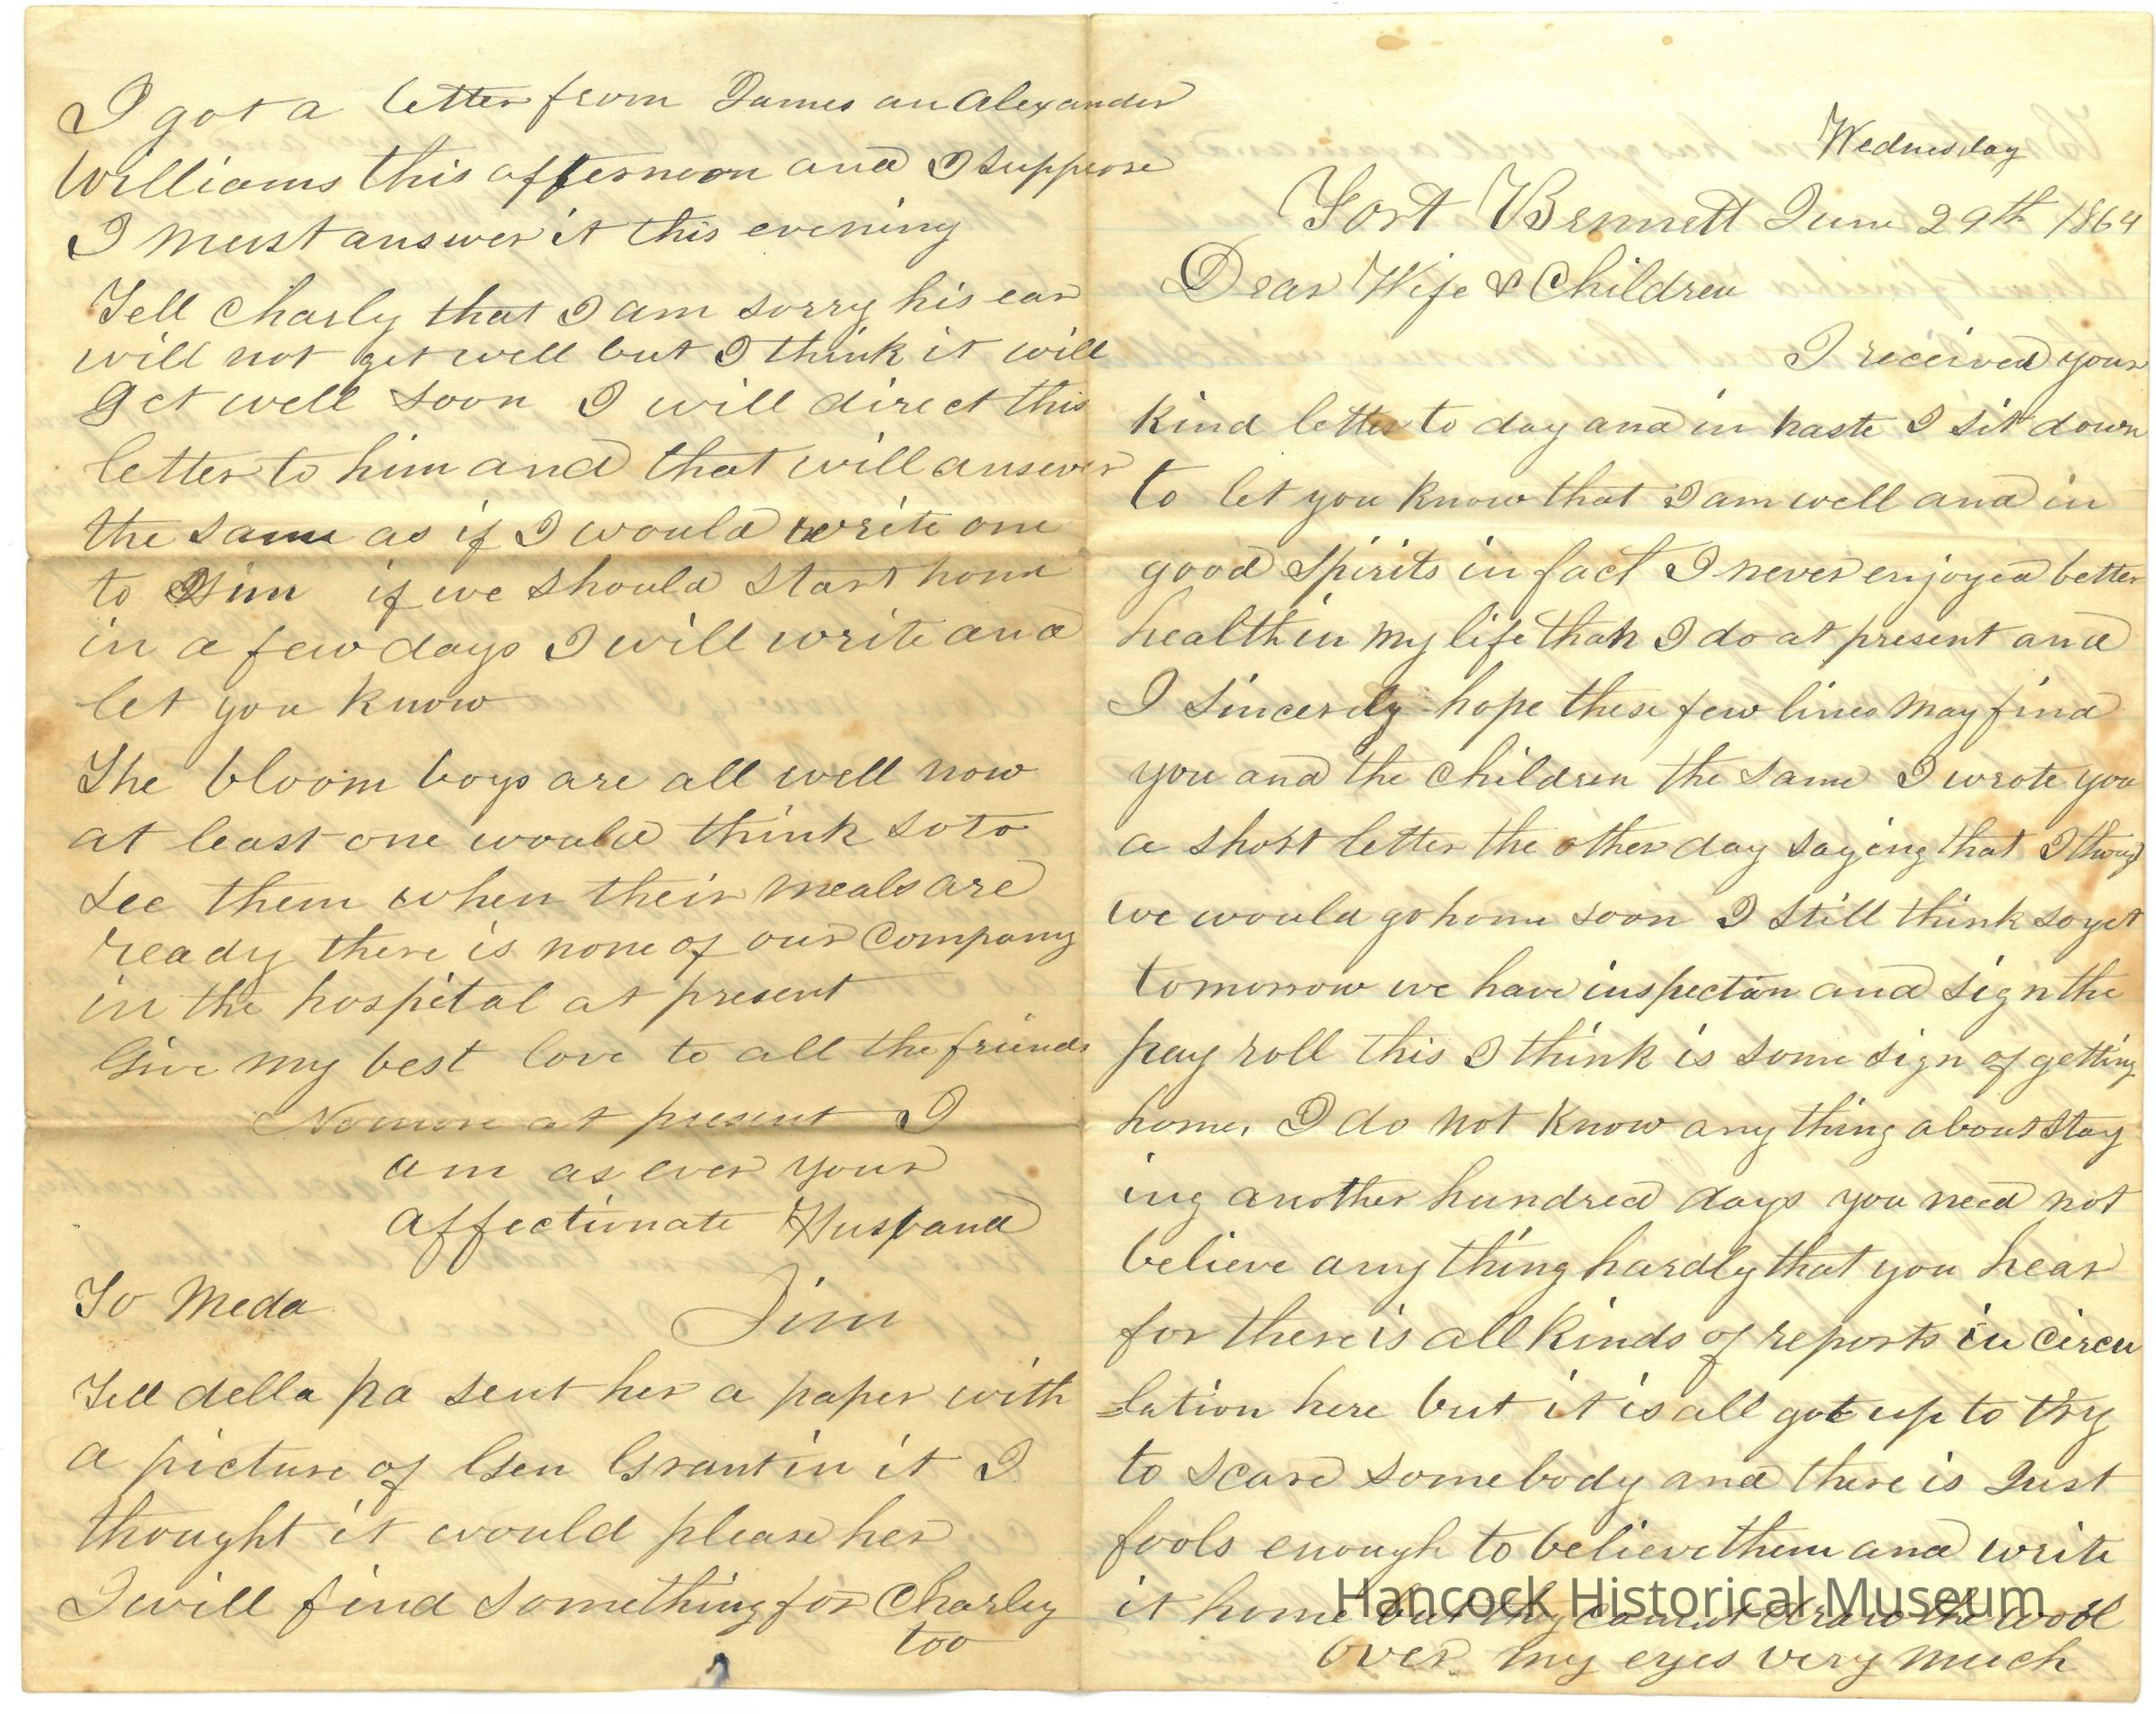 Wednesday
Fort Bennett June 29th 1864
Dear Wife & Children
I received your
kind letter to day and in haste I sit down
to let you know that I am well and in
good spirits in fact I never enjoyed better
health in my life than I do at present and
I sincerely hope these few lines may find
you and the children the same I wrote you
a short letter the other day saying that I
we would go home soon I still think so yet
tomorrow we have inspection and sign the
pay roll this I think is some sign of getting
home, I do not know any thing about stay
ing another hundred days you need not
believe any thing hardly that you hear
for there is all kinds of reports in circu
=lation here but it is all got up to try
to scare somebody and there is Just
fools enough to believe them and write
it home but they cannot draw the wool
over my eyes very much
I got a letter from James an Alexander
Williams this afternoon and I suppose
I must answer it this evening
Tell Charly that I am sorry his ear
will not get well but I think it will
get well soon I will direct this
letter to him and that will answer
the same as if I would write one
to Him if we should start home
in a few days I will write and
let you know
The bloom boys are all well now
at least one would think so to
see them when their meals are
ready there is none of our Company
in the hospital at present
Give my best love to all the friends
No more at present I
am as ever your
affectionate Husband
To Meda Jim
Tell della pa sent her a paper with
a picture of Gen Grant in it I
thought it would please her
I will find something for Charley
too
Hancock Historical Museum